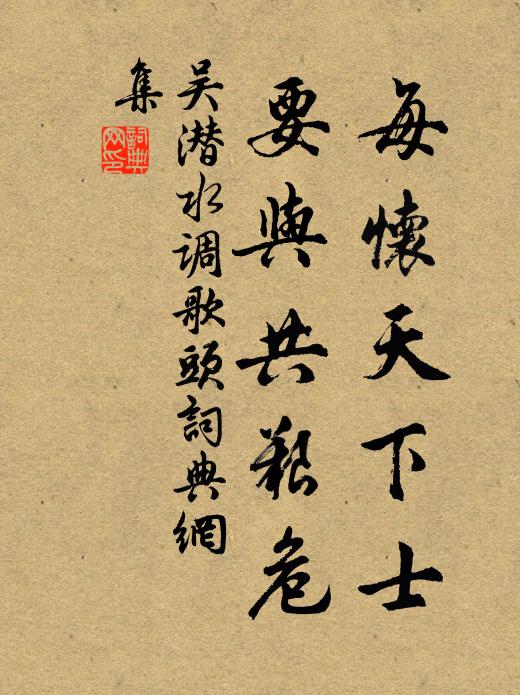 每懷天下士
要與共艱危
吴潜水调歌頭詞典網
集
詞典
网印